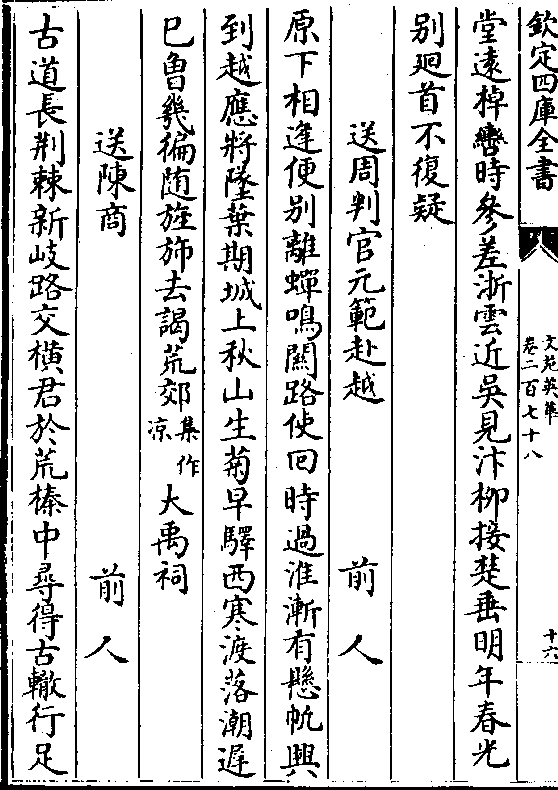 欽定四庫全書
文苑英華
卷二百七十八
十六
堂遠棹轡時參差浙雲近吳見汴柳接楚垂明年春光
别廻首不復疑
送周判官元範赴越 前人
原下相逢便别離蟬鳴闗路使回時過淮漸有懸帆興
到越應將墜葉期城上秋山生菊早驛西寒渡落潮遲
已魯幾徧随旌斾去謁荒郊集作凉大禹祠
送陳商 前人
古道長荆棘新岐路交横君於荒榛中尋得古轍行足